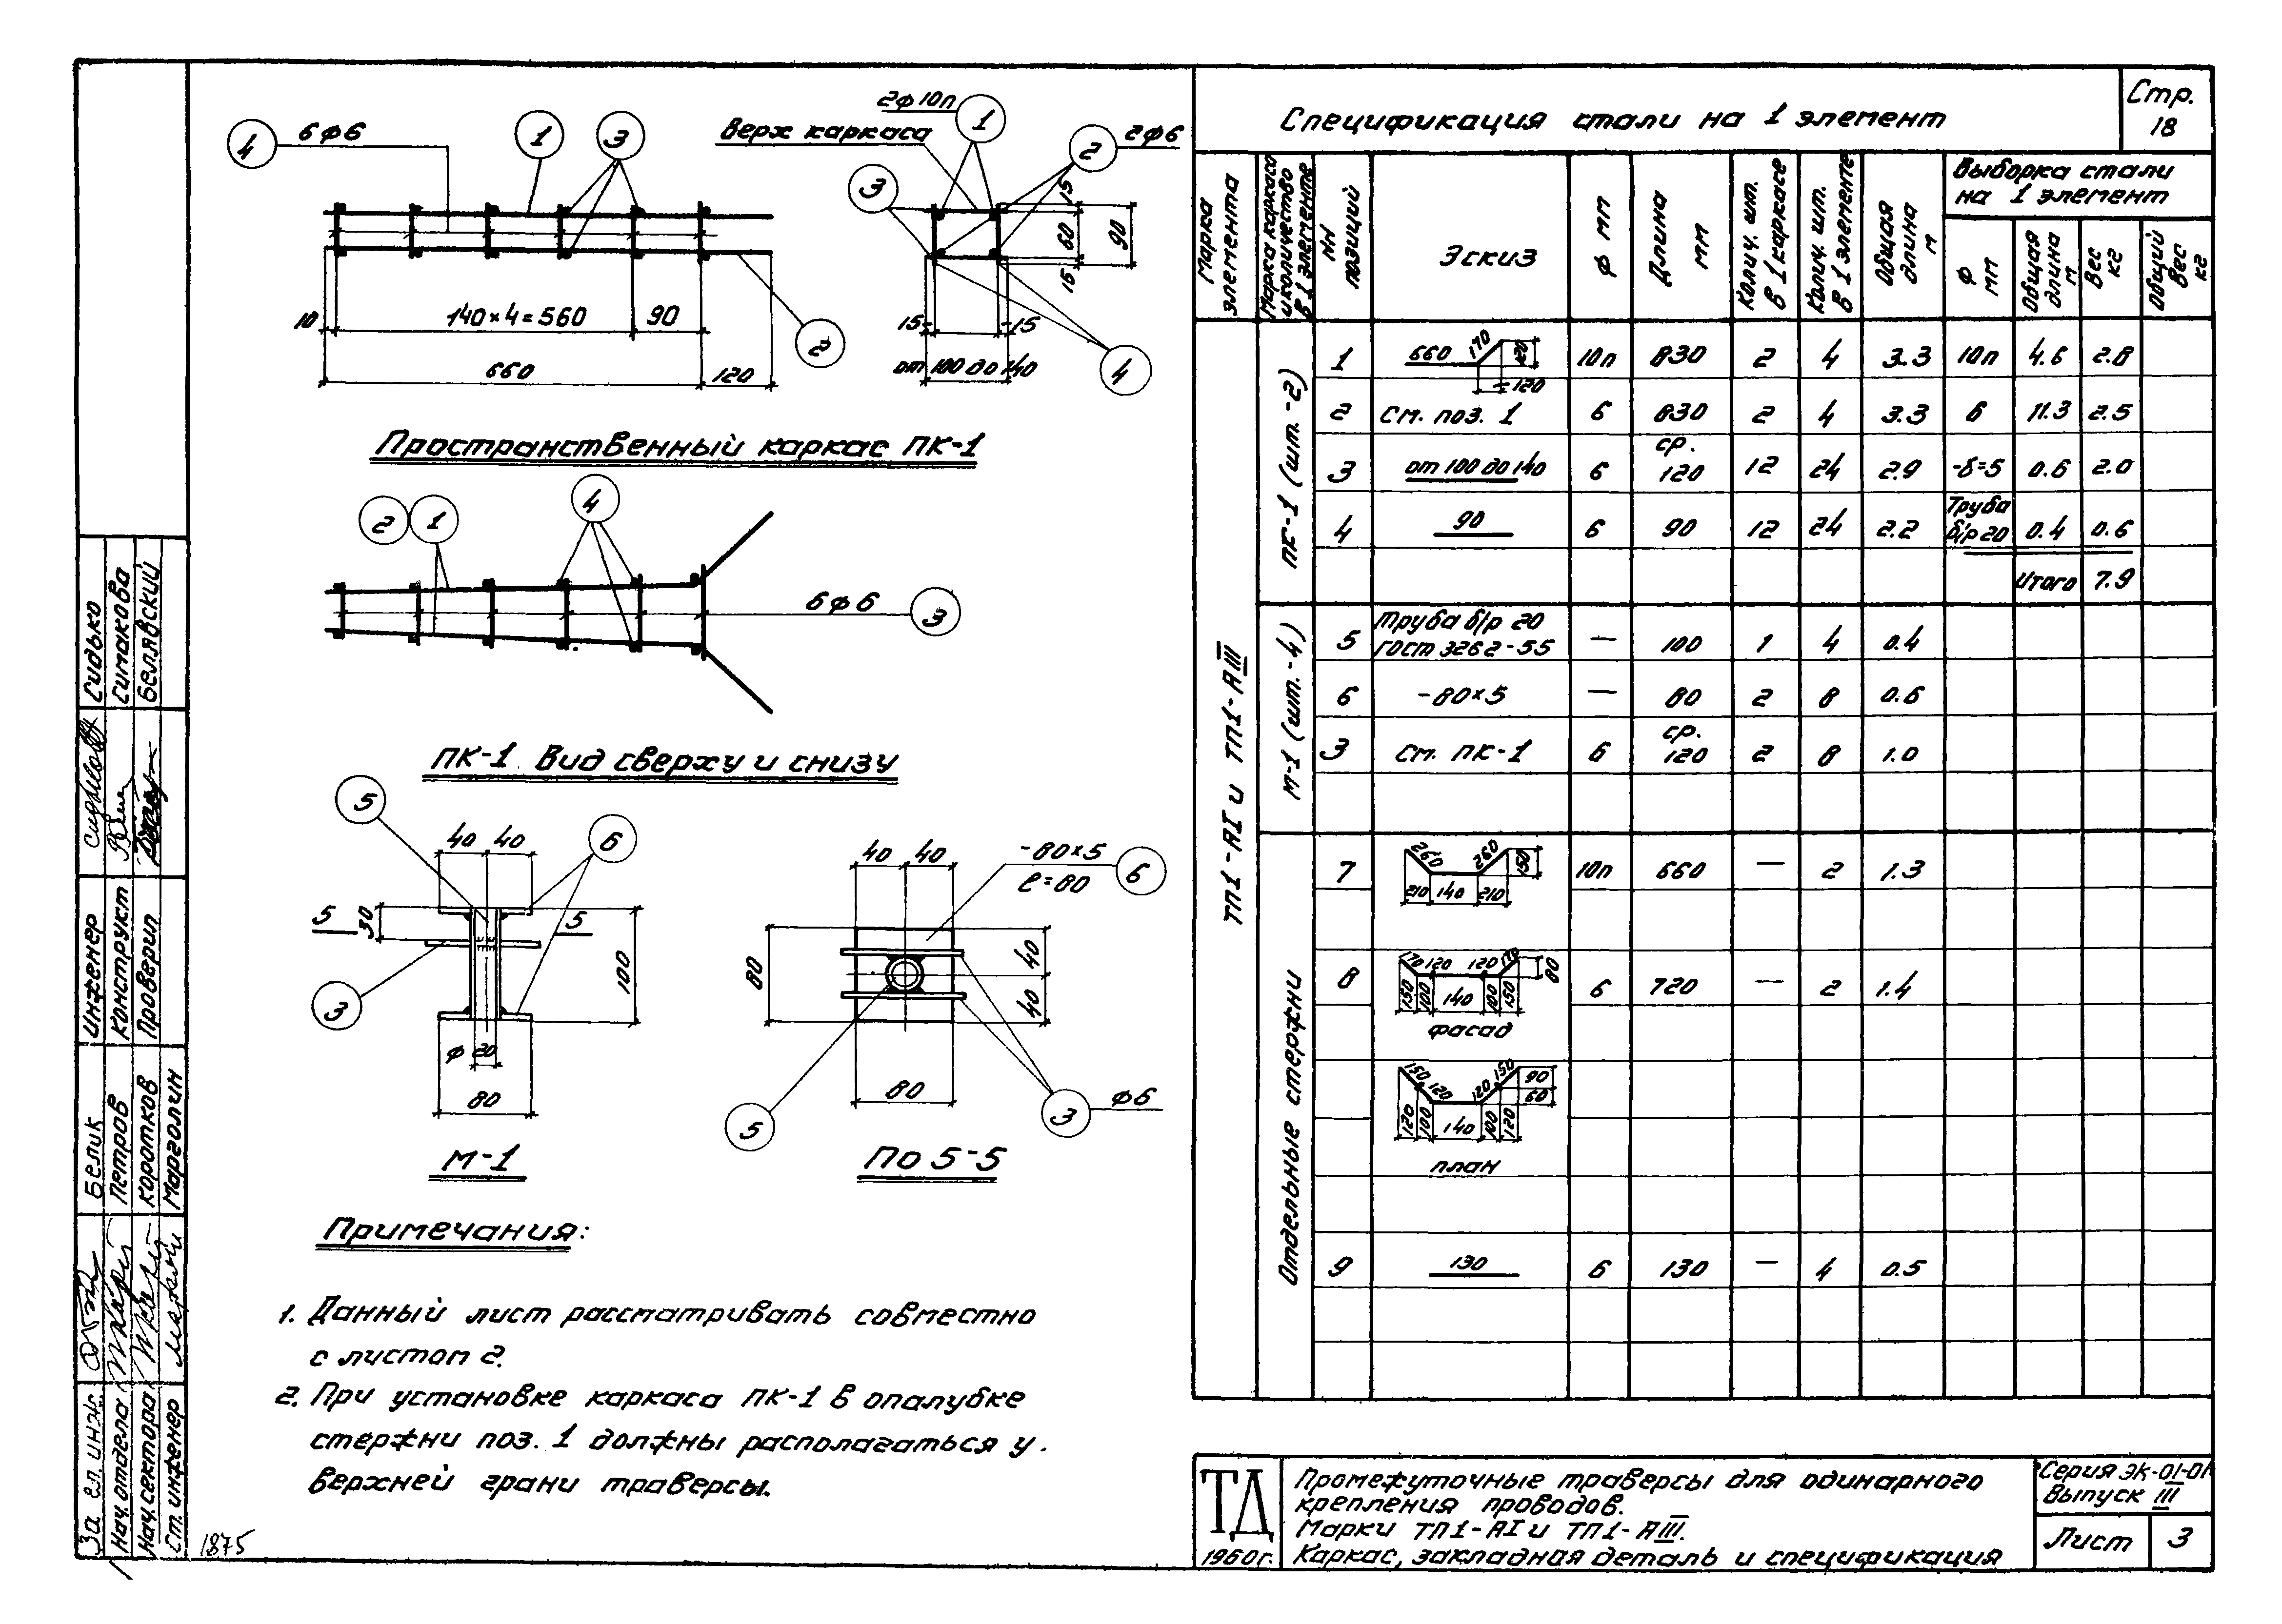 2ф10п
1
4
6ф6
1
3
верх каркаса
2
2ф6
3
15
60
90
15
10
140×4=560
90
2
15
15
660
120
от 100 до 140
4
Пространственный каркас ПК-1
2
1
4
6ф6
3
ПК-1 Вид сверху и снизу
5
40
40
6
5
30
5
100
3
ф 20
80
М-1
40
40
-80×5
ℓ=80
6
80
40
40
80
5
3
ф6
По 5-5
Примечания:
1. Данный лист рассматривать совместно
с листом 2.
2. При установке каркаса ПК-1 в опалубке
стержни поз. 1 должны располагаться у
верхней грани траверсы.
1875
Сидько
Симакова
Белявский
Инженер
Конструкт
Проверил
Белик
Петров
Коротков
Марголин
За. гл. инж.
Нач. отдела
Нач. сектора
Ст. инженер
Спецификация стали на 1 элемент
Стр.
18
Марка элемента
Марка каркаса и количество в 1 элементе
НН позиций
Эскиз
ф мм
Длина мм
Колич. шт. в 1 каркасе
Колич. шт. в 1 элементе
Общая длина м
Выборка стали
на 1 элемент
ф мм
Общая длина м
Вес кг
Общий вес кг
ТП1-АI и ТП1-АIII
ПК-1 (шт.-2)
1 660 170 120 120 10п 830 2 4 3.3 10п 4.6 2.8
2 См. поз. 1 6 830 2 4 3.3 6 11.3 2.5
3 от 100 до 140 6 ср. 120 12 24 2.9 -δ=5 0.6 2.0
4 90 6 90 12 24 2.2 Труба б/р 20 0.4 0.6
Итого 7.9
М-1 (шт.-4)
5 Труба б/р 20 ГОСТ 3262-55 — 100 1 4 0.4
6 -80×5 — 80 2 8 0.6
3 см. ПК-1 6 ср. 120 2 8 1.0
Отдельные стержни
7 260 260 150 210 140 210 10п 660 — 2 1.3
8 170 120 120 170 80 150 100 140 100 150 6 720 — 2 1.4
фасад
150 120 120 150 90 60 120 100 140 100 120
план
9 130 6 130 — 4 0.5
ТД
1960г.
Промежуточные траверсы для одинарного
крепления проводов.
Марки ТП1-АI и ТП1-АIII.
Каркас, закладная деталь и спецификация
Серия ЭК-01-01
Выпуск III
Лист
3